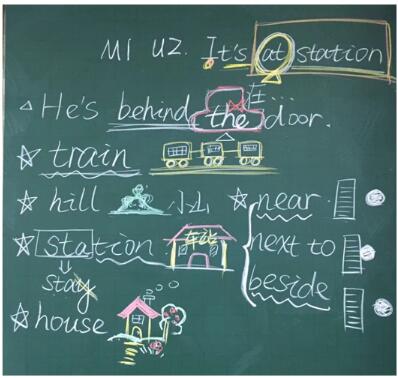 M1 U2. It's at station
△He's behind the door.
在
☆train
☆hill 小山
☆near
☆station 车站
next to
stay
beside
☆house